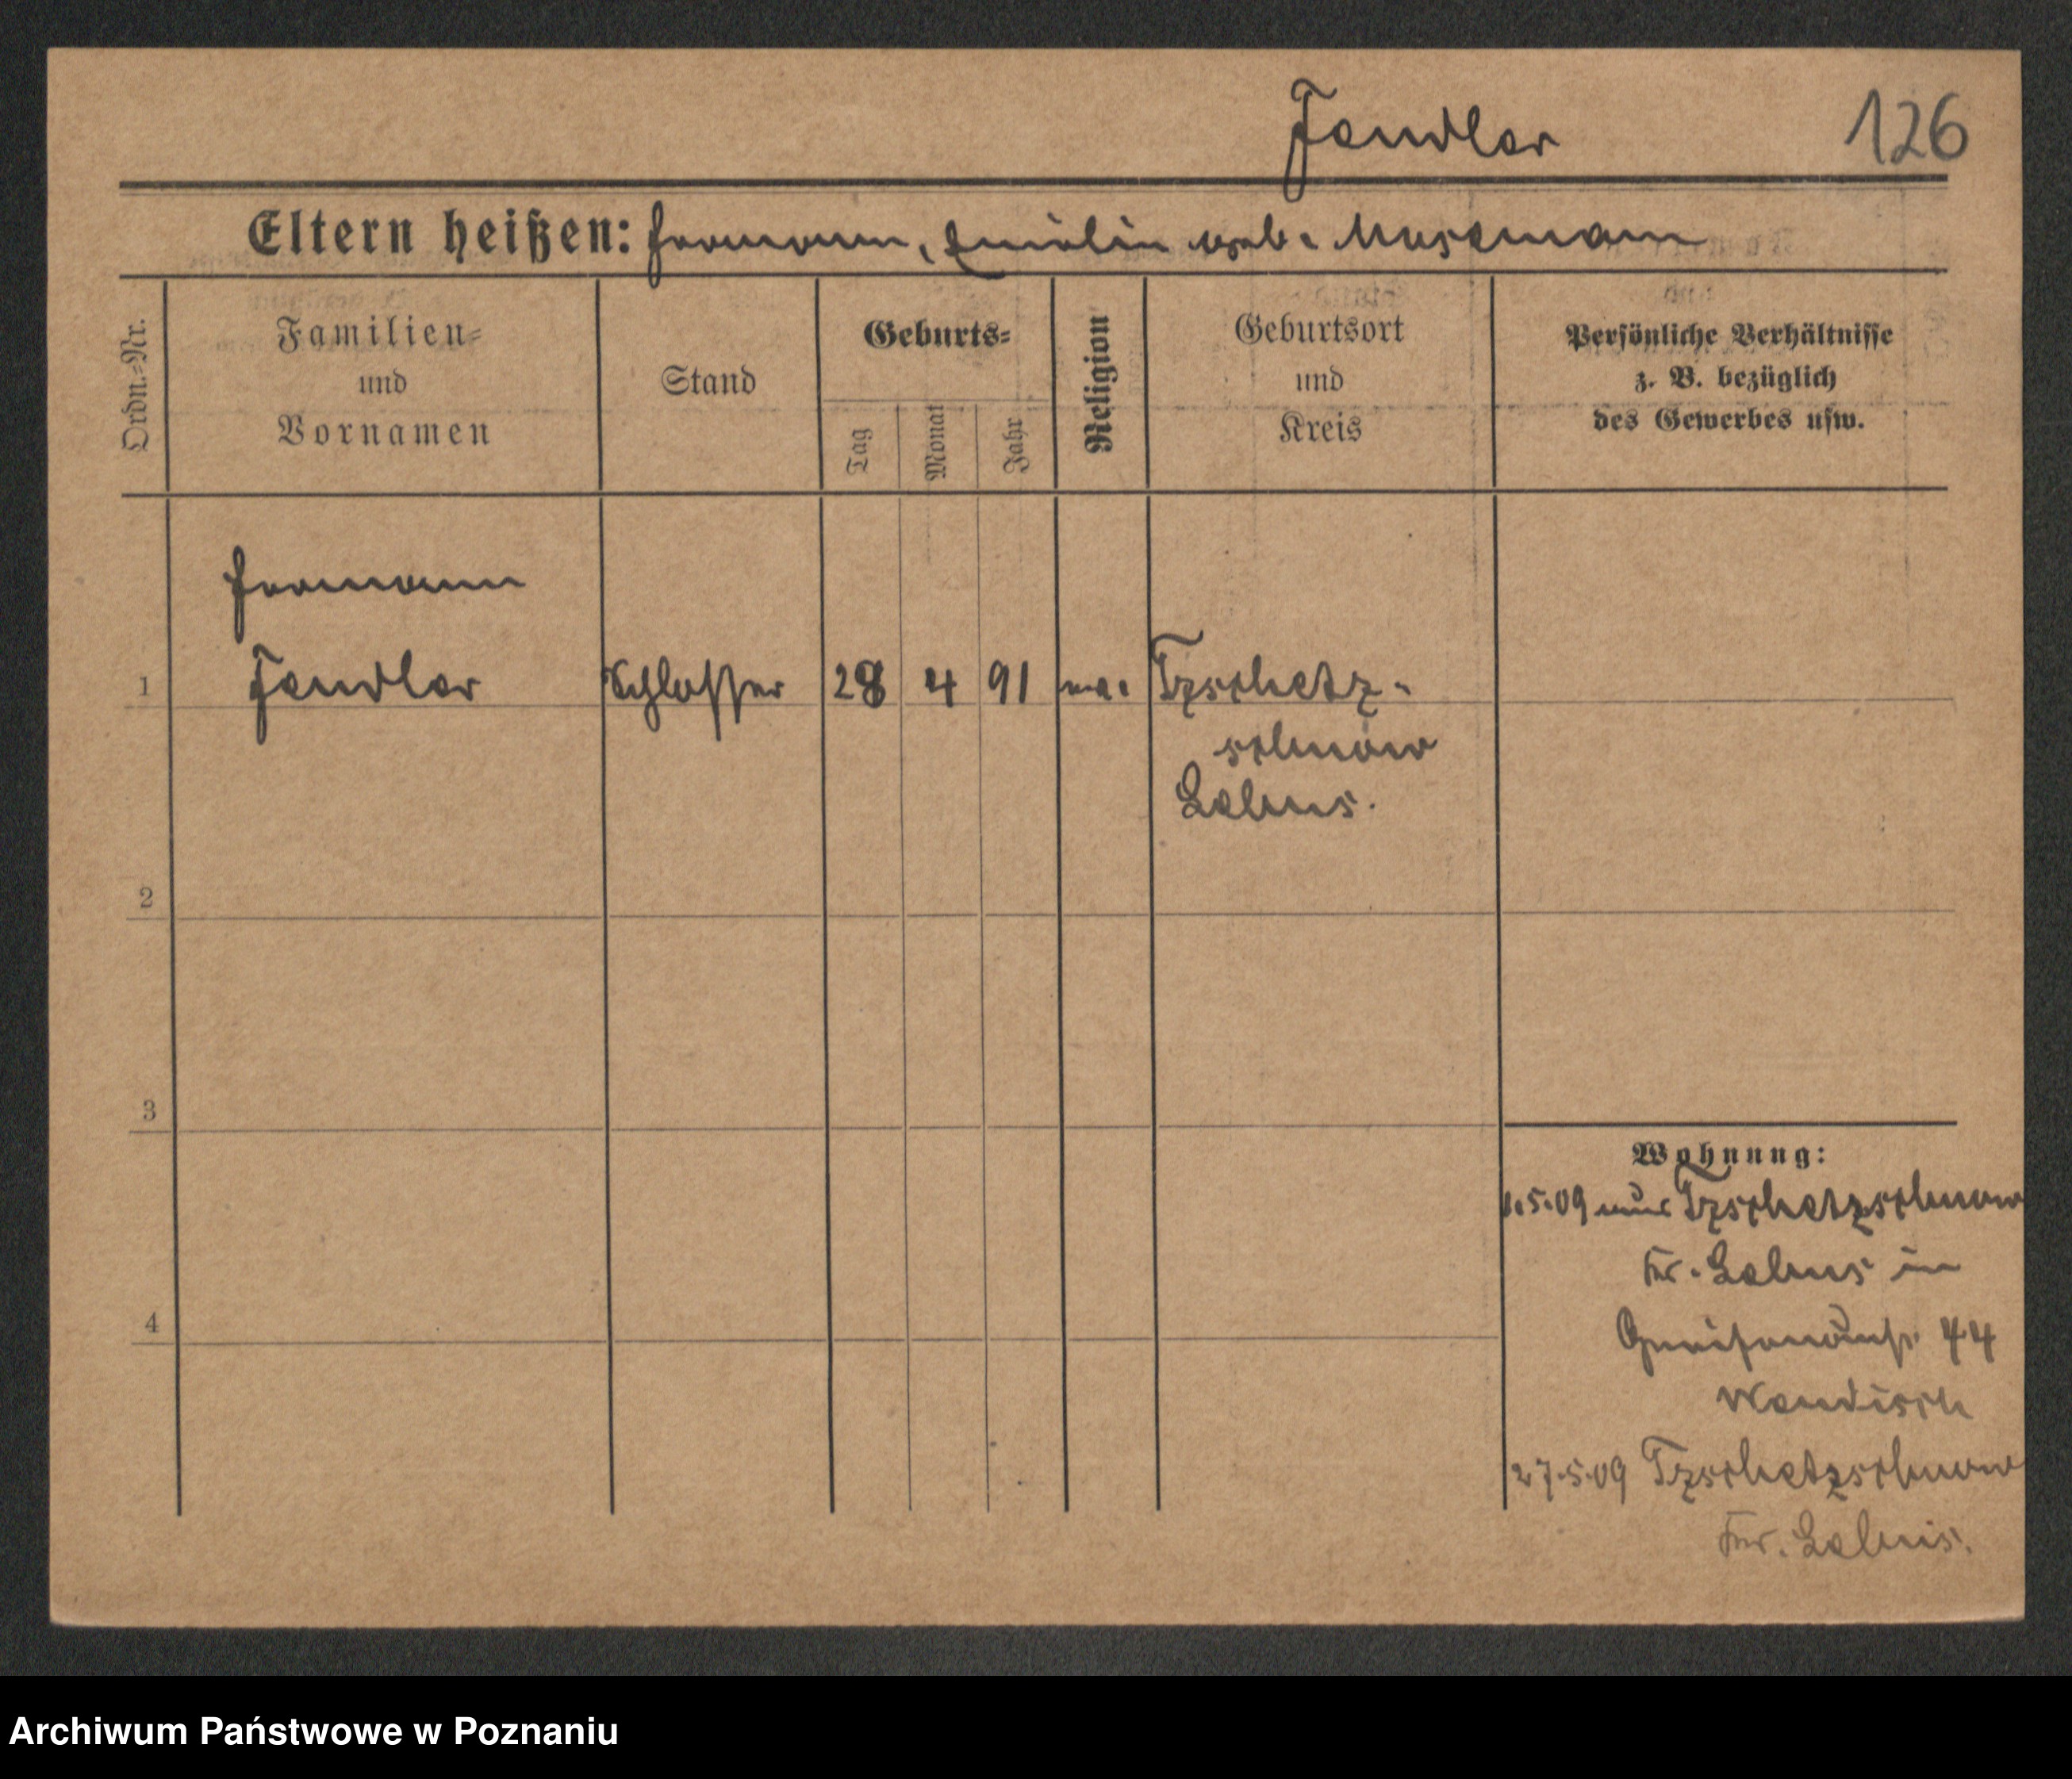 Jendler
126
Eltern heißen: Hermann, Emilie geb. Mussmann
Ordn.-Nr.
Familien-
und
Vornamen
Stand
Geburts-
Tag
Monat
Jahr
Religion
Geburtsort
und
Kreis
Persönliche Verhältnisse
z. B. bezüglich
des Gewerbes usw.
Hermann
1 Jendler Schlosser 28 4 91 ev. Tzschetz-
schnow
Lebus.
2
3
4
Wohnung:
5.09 aus Tzschetzschnow
Kr. Lebus in
Gneisenaustr. 44
27.5.09 Tzschetzschnow
Kr. Lebus.
Archiwum Państwowe w Poznaniu